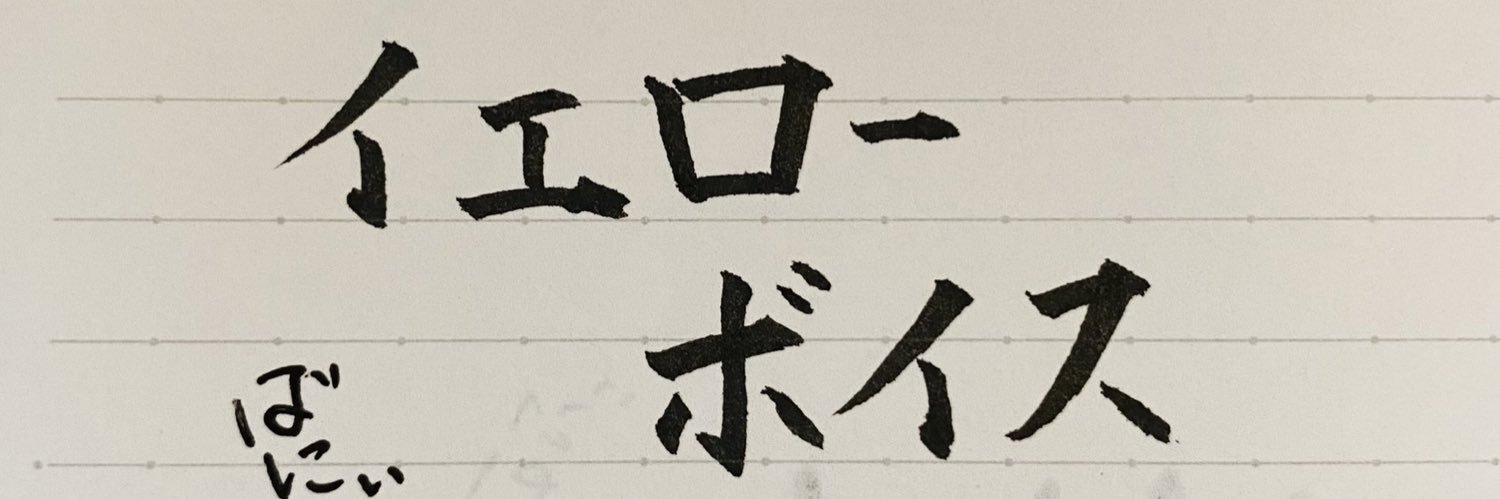 イエロー
ボイス
ばにぃ